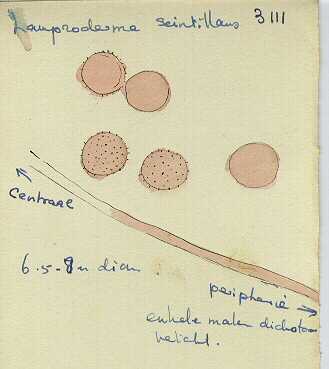 Lamproderma scintillans 3111
Centrale
6.5-8 u diam.
peripherie
enkele malen dichotoom